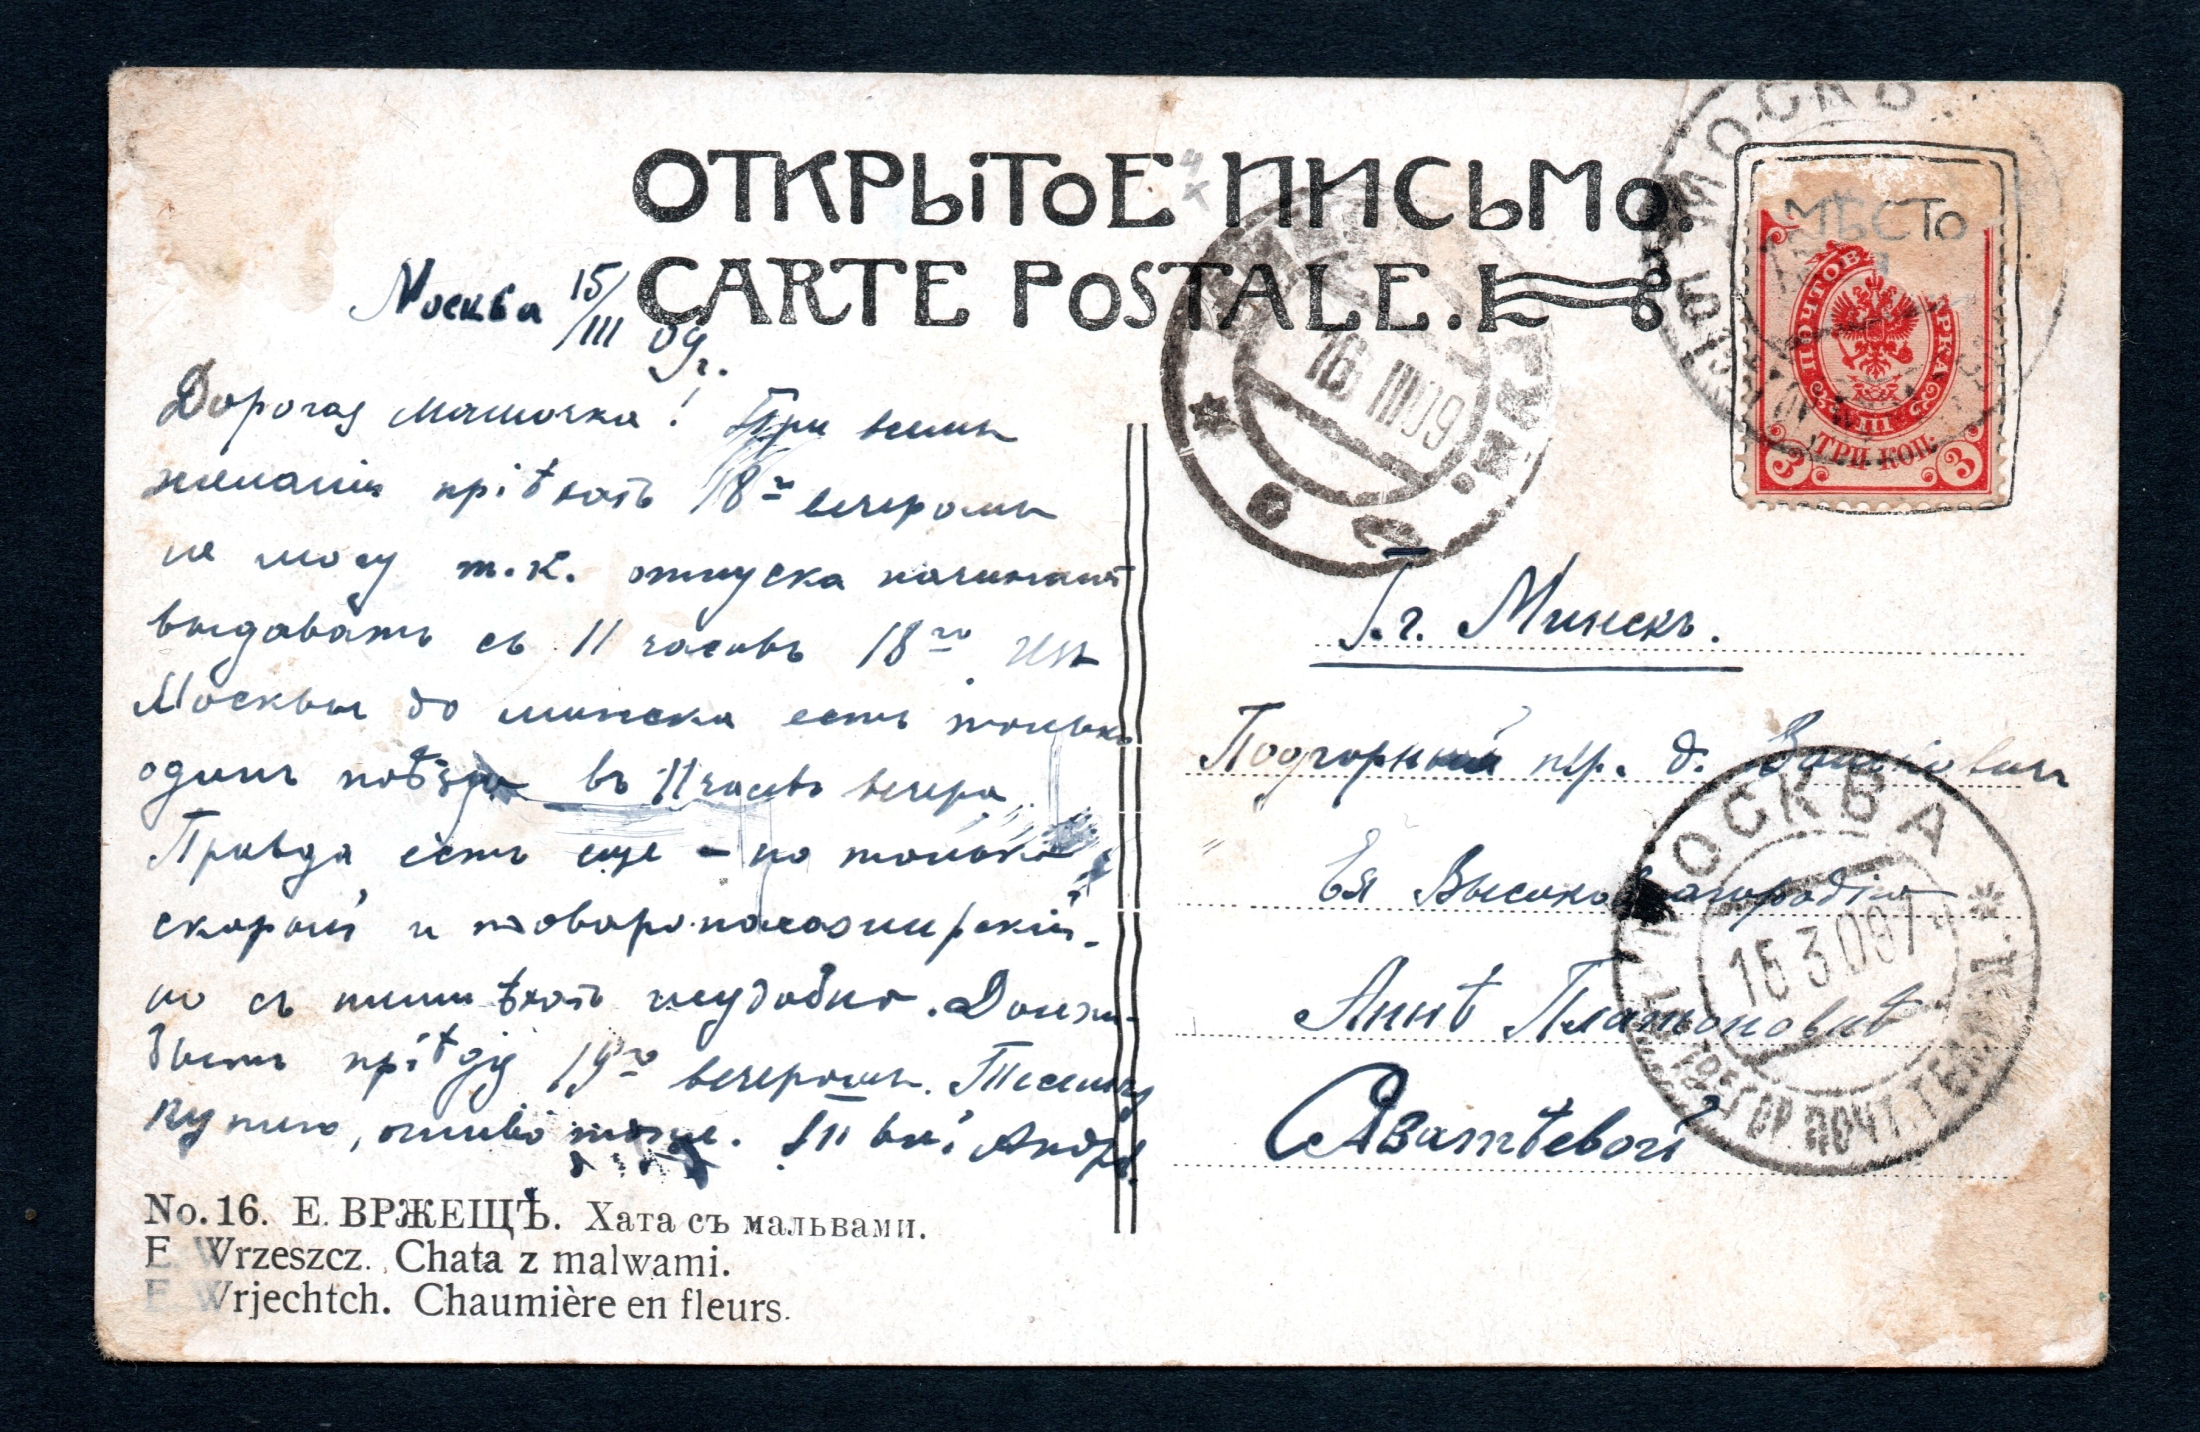 ОТКРЫТОЕ ПИСЬМО.
CARTE POSTALE.
МѢСТО
ТРИ КОП.
3 3
Москва 15/III 09 г.
Дорогая мамочка! При всемъ
желаніи пріѣхать 18го вечеромъ
не могу т.к. отпуска начинаютъ
выдавать съ 11 часовъ 18го Изъ
Москвы до Минска есть только
одинъ поѣздъ въ 11 часовъ вечера
Правда есть еще – но только
скорый и товаропассажирскій
но съ ними ѣхать неудобно. Должно
быть пріѣду 19го вечеромъ. Тесемку
купилъ, тоже.
16 III 09
Г. г. Минскъ.
Подгорный пер. д.
Ея Высокоблагородію
Аннѣ Платоновнѣ
Аватѣевой
МОСКВА
15 3.09
No. 16. Е. ВРЖЕЩЪ. Хата съ мальвами.
E. Wrzeszcz. Chata z malwami.
E. Wrjechtch. Chaumière en fleurs.